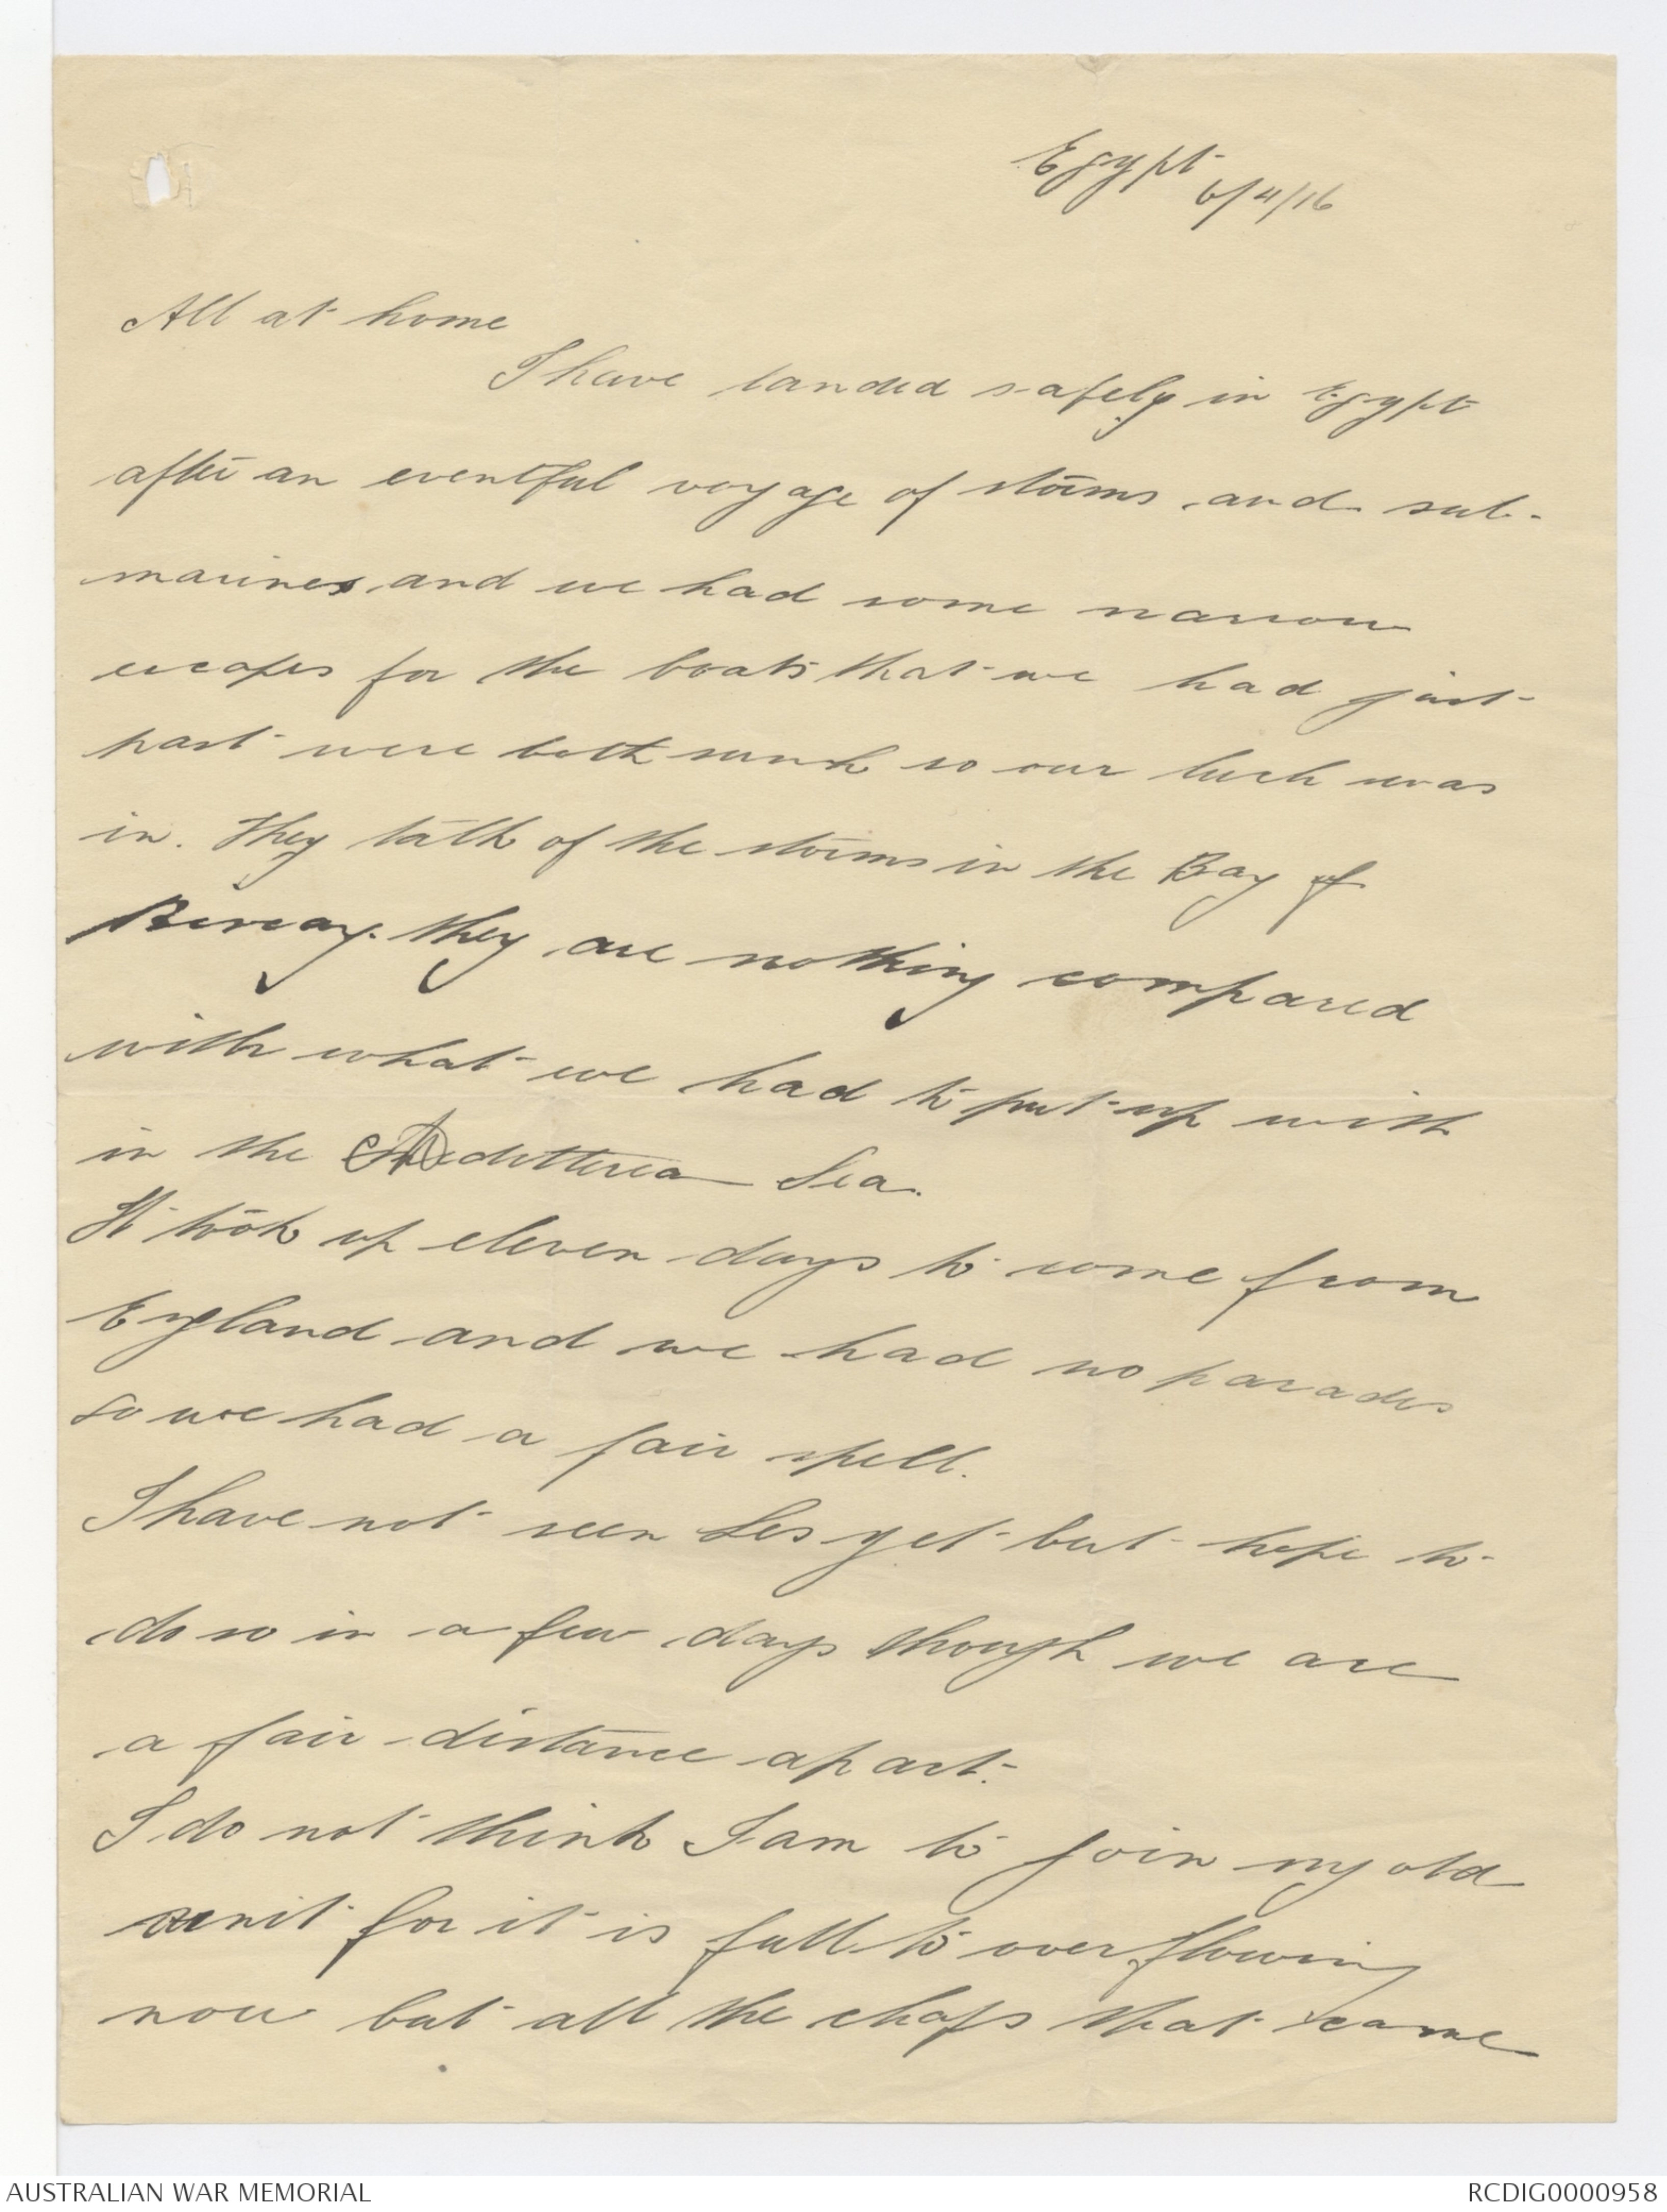 Egypt
6/4/16
All at home
I have landed safely in Egypt
after an eventful voyage of storms and sub-
marines and we had some narrow
escapes for the boats that we had just
past were both sunk so our luck was
in. They talk of the storms in the Bay of
Biscay. they are nothing compared
with what we had to put up with
in the Meditterea Sea.
It took up eleven days to come from
England and we had no parades
so we had a fair spell.
I have not seen Les yet but hope to
do so in a few days though we are
a fair distance apart.
I do not think I am to join my old
unit for it is full to overflowing
now but all the chaps that came
AUSTRALIAN WAR MEMORIAL
RCDIG0000958